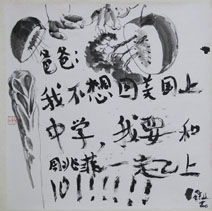 爸爸:
我不想回美国上
中学，我要和
兆菲一起上
10!!!!!!